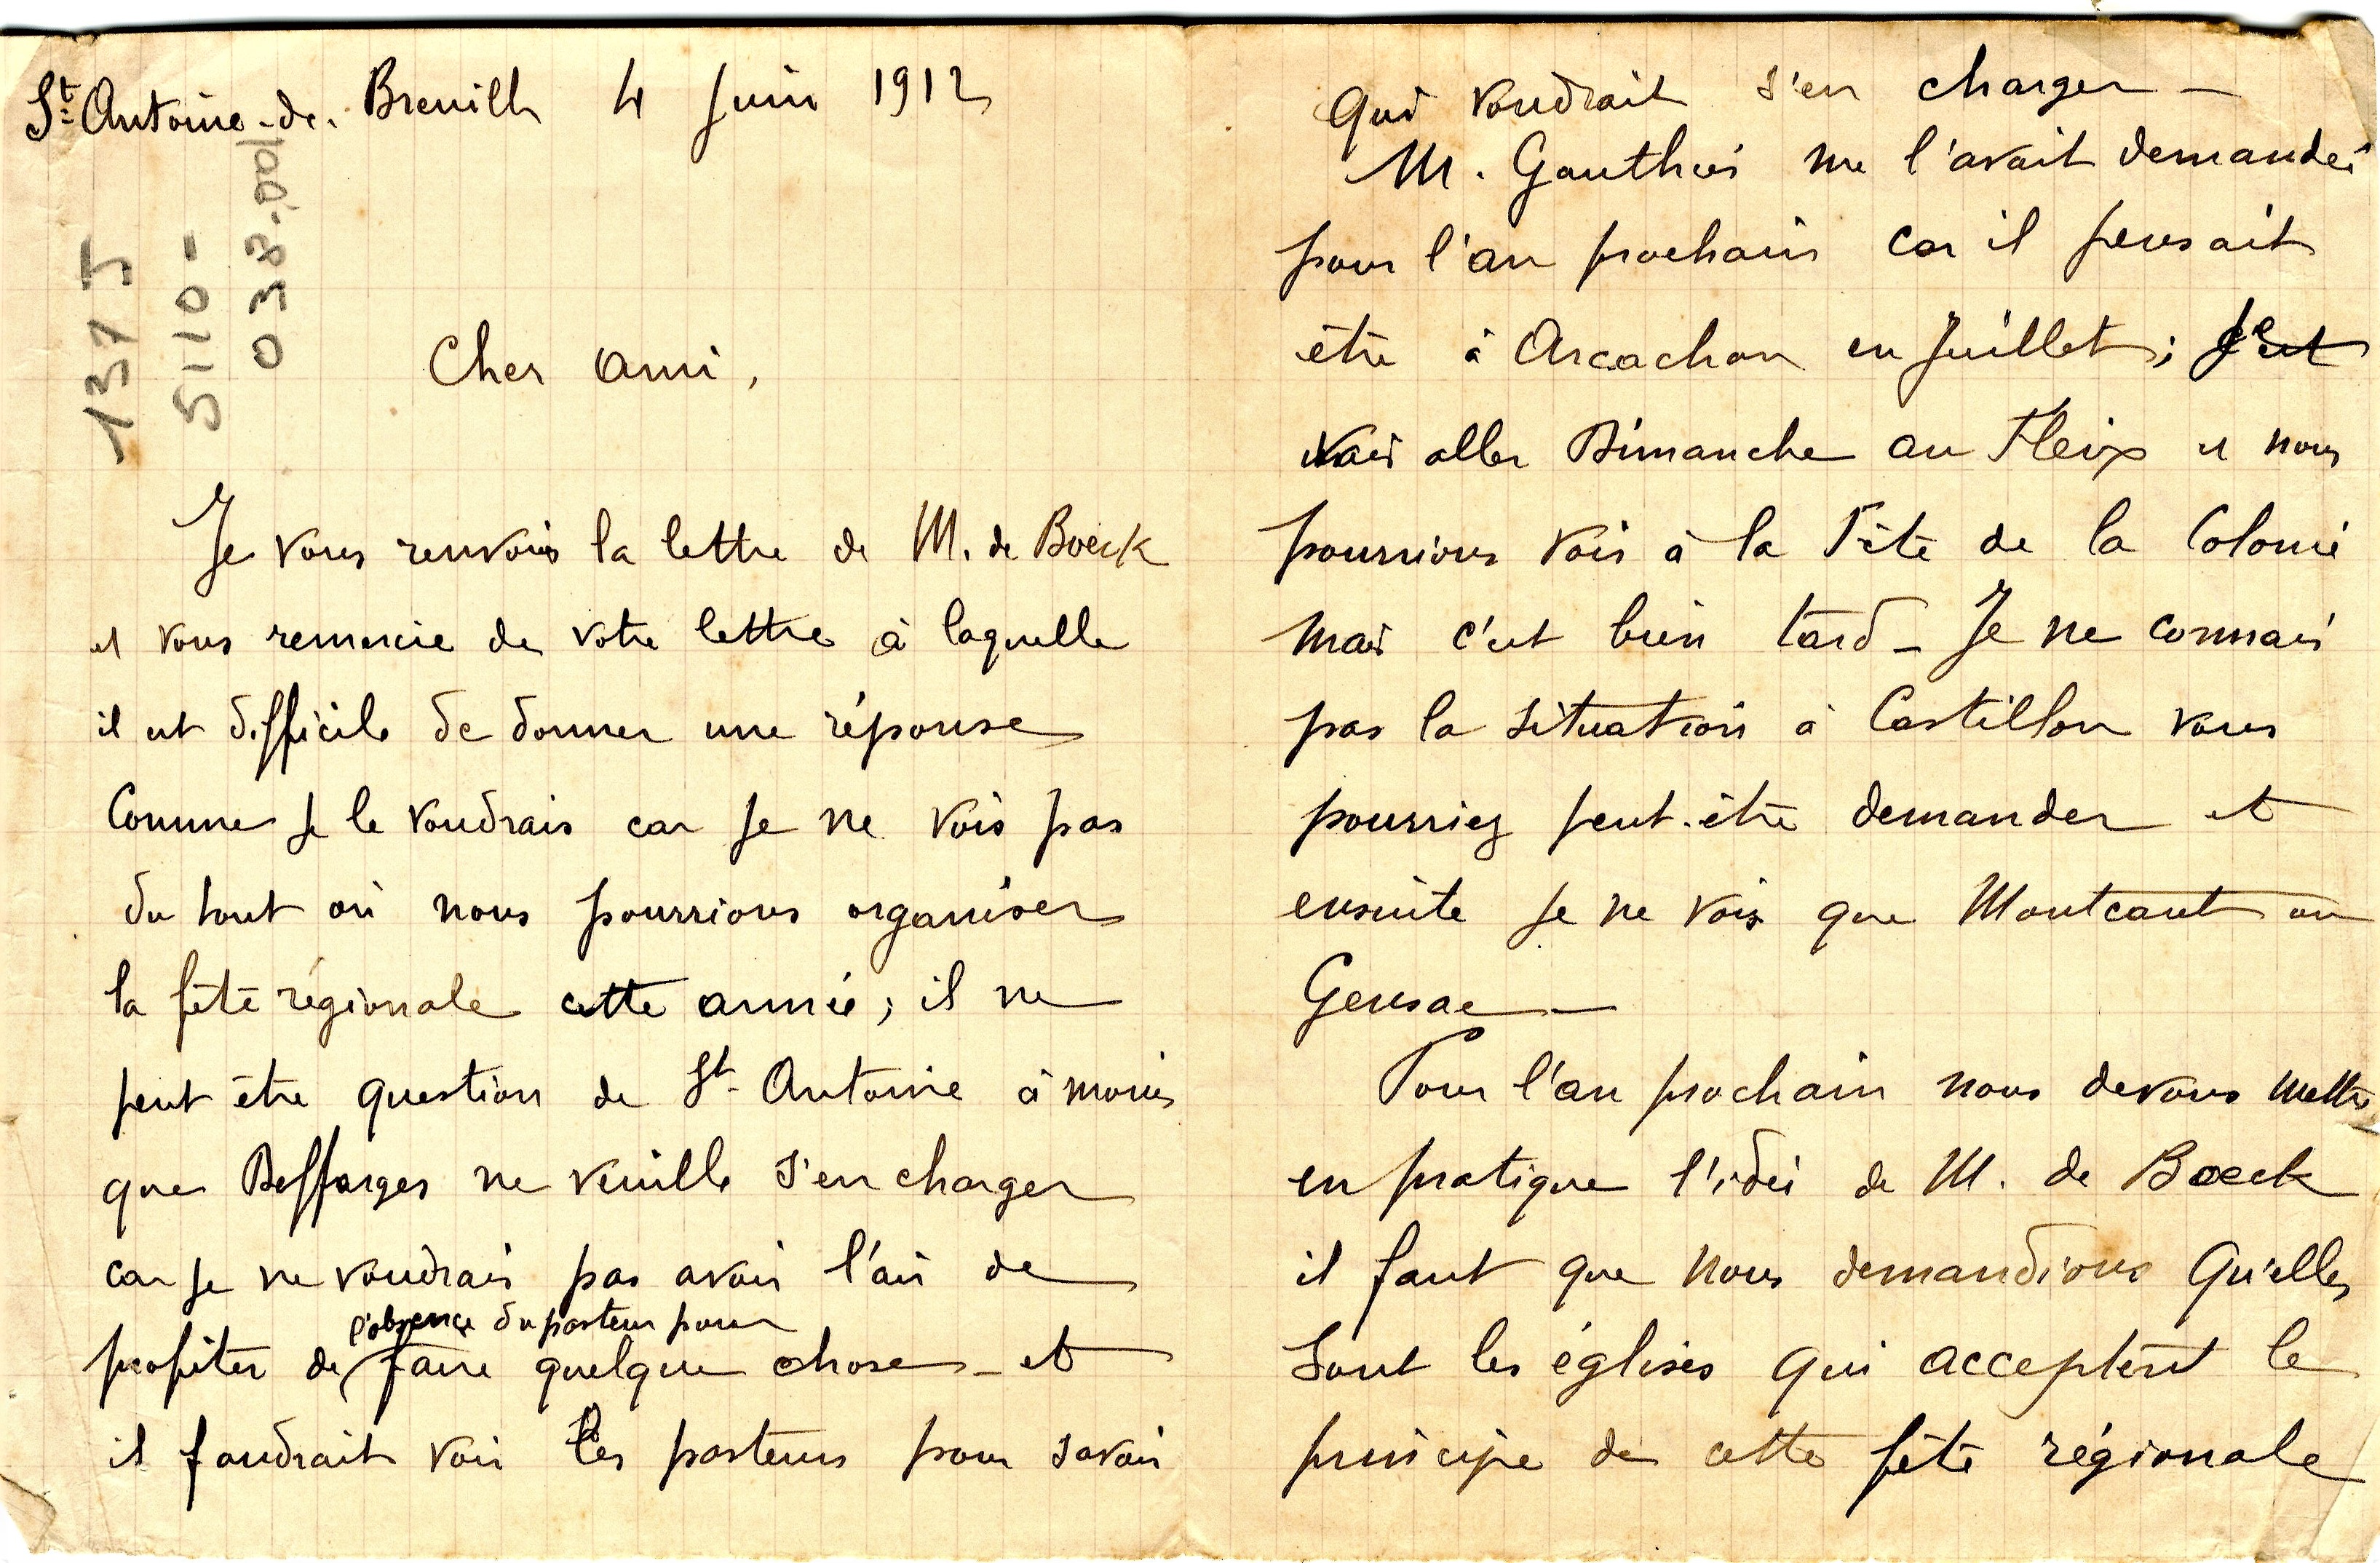 St Antoine-de-Breuilh 4 Juin 1912
137 J
5110-
038.001
Cher ami,
Je vous renvois la lettre de M. de Boeck
et vous remercie de votre lettre à laquelle
il est difficile de donner une réponse
comme je le voudrais car je ne vois pas
du tout où nous pourrions organiser
la fête régionale cette année; il ne
peut être question de St Antoine à moins
que Deffarges ne veuille s'en charger
car je ne voudrais pas avoir l'air de
l'absence du pasteur pour
profiter de faire quelque chose - et
il faudrait voir les pasteurs pour savoir
qui voudrait s'en charger -
M. Gauthier me l'avait demandée
pour l'an prochain car il pensait
être à Arcachon en Juillet;
vais aller Dimanche au Fleix et nous
pourrions voir à la Fête de la Colonie
mais c'est bien tard - Je ne connais
pas la situation à Castillon vous
pourriez peut-être demander et
ensuite je ne vois que Montcaut ou
Gensac -
Pour l'an prochain nous devons mettre
en pratique l'idée de M. de Boeck
il faut que nous demandions qu'elles
sont les églises qui acceptent le
principe de cette fête régionale